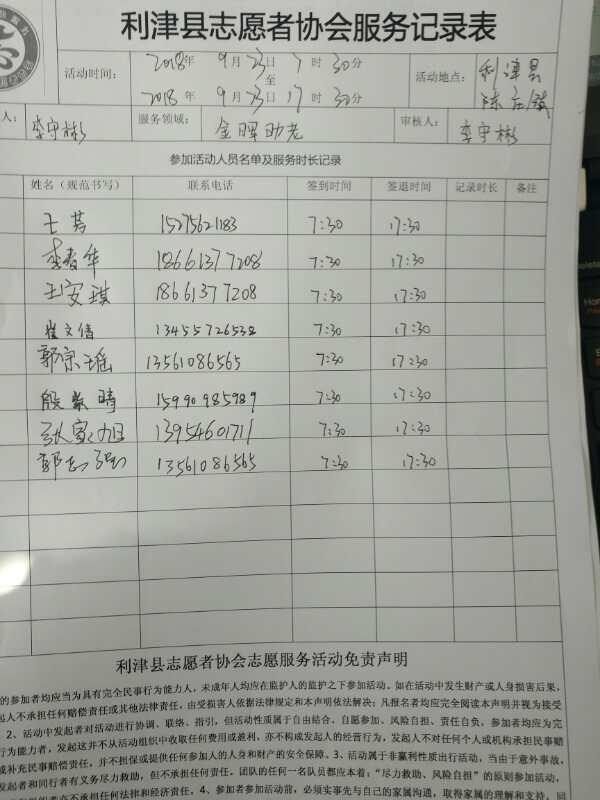 利津县志愿者协会服务记录表
活动时间： 2018年 9月23日 7时30分 活动地点： 利津县
至
2018年 9月23日17时30分 陈庄镇
人： 李守彬 服务领域： 金晖助老 审核人： 李守彬
参加活动人员名单及服务时长记录
姓名（规范书写） 联系电话 签到时间 签退时间 记录时长 备注
王芳 15275621183 7:30 17:30
李春华 18661377208 7:30 17:30
王安琪 18661377208 7:30 17:30
崔文倩 13455726538 7:30 17:30
郭宗瑶 13561086565 7:30 17:30
殷紫晴 15990985989 7:30 17:30
张家旭 13954601711 7:30 17:30
郭志强 13561086565 7:30 17:30
利津县志愿者协会志愿服务活动免责声明
的参加者均应当为具有完全民事行为能力人，未成年人均应在监护人的监护之下参加活动。如在活动中发生财产或人身损害后果，
起人不承担任何赔偿责任或其他法律责任，由受损害人依据法律规定和本声明依法解决；凡报名者均应完全阅读本声明并视为接受
。2、活动中发起者对活动进行协调、联络、指引，但活动性质属于自由结合、自愿参加、风险自担、责任自负。参加者均应为完
行为能力者，发起这并不从活动组织中收取任何费用或盈利，亦不构成发起人的经营行为，发起人不对任何个人或机构承担民事赔
或补充民事赔偿责任，并不担保或提供任何参加人的人身和财产的安全保障。3、活动属于非赢利性质出行活动，当由于意外事故，
发起者和同行者有义务尽力救助，但不承担任何责任。团队的任何一名队员都应本着："尽力救助、风险自担"的原则参加活动，
不承担任何法律和经济责任。4、参加者参加活动前，必须实事先与自己的家属沟通，取得家属的理解和支持，同